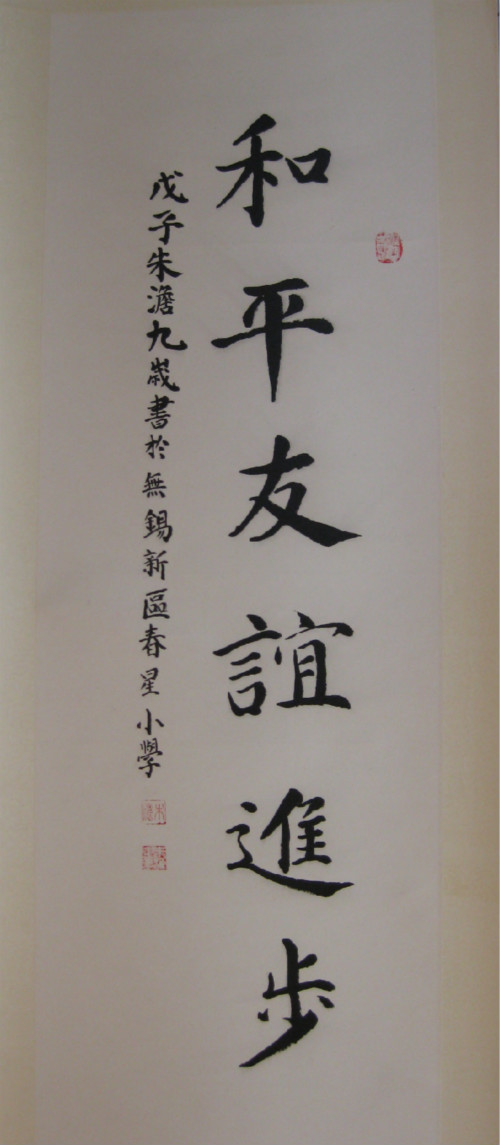 和平友誼進步
戊子朱澹九歲書於無錫新區春星小學